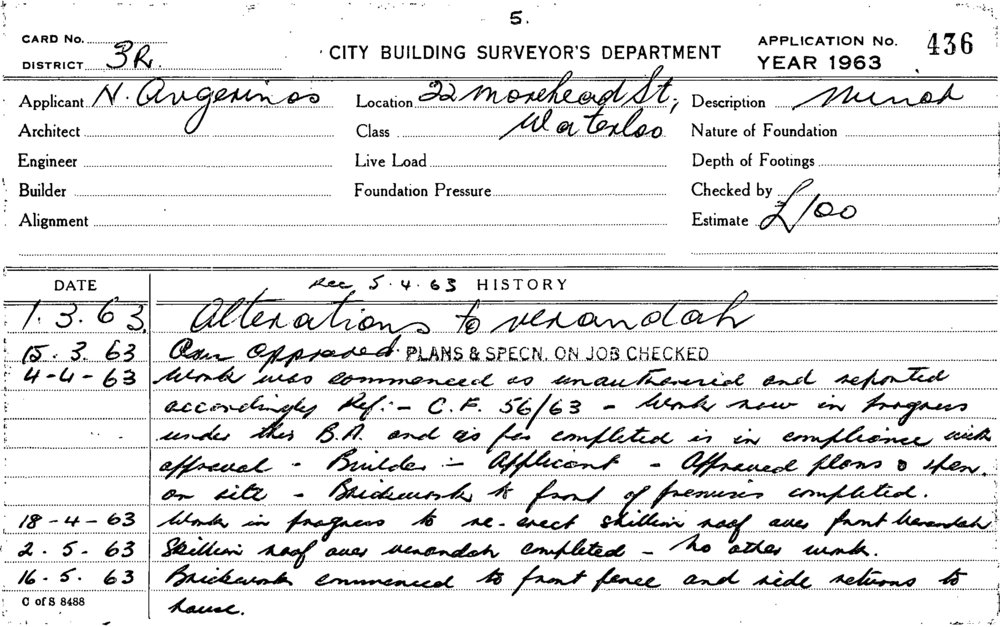 5.
CARD No.
DISTRICT 3R.
CITY BUILDING SURVEYOR'S DEPARTMENT
APPLICATION No. 436
YEAR 1963
Applicant N. Avgerinos
Location 22 Morehead St,
Waterloo
Description Minor
Architect
Class
Nature of Foundation
Engineer
Live Load
Depth of Footings
Builder
Foundation Pressure
Checked by
Alignment
Estimate £100
DATE
Rec 5.4.63 HISTORY
1.3.63. Alterations to verandah
15.3.63 approved. PLANS & SPECN. ON JOB CHECKED
4-4-63 Work was commenced as unauthorised and reported
accordingly Ref:- C.F. 56/63 - Work now in progress
under this B.A. and as far completed is in compliance with
approval - Builder :- Applicant - Approved plans & spen.
on site - Brickwork to front of premises completed.
18-4-63 Work in progress to re-erect skillion roof over front verandah
2.5.63 Skillion roof over verandah completed - No other work.
16.5.63 Brickwork commenced to front fence and side returns to
house.
C of S 8488